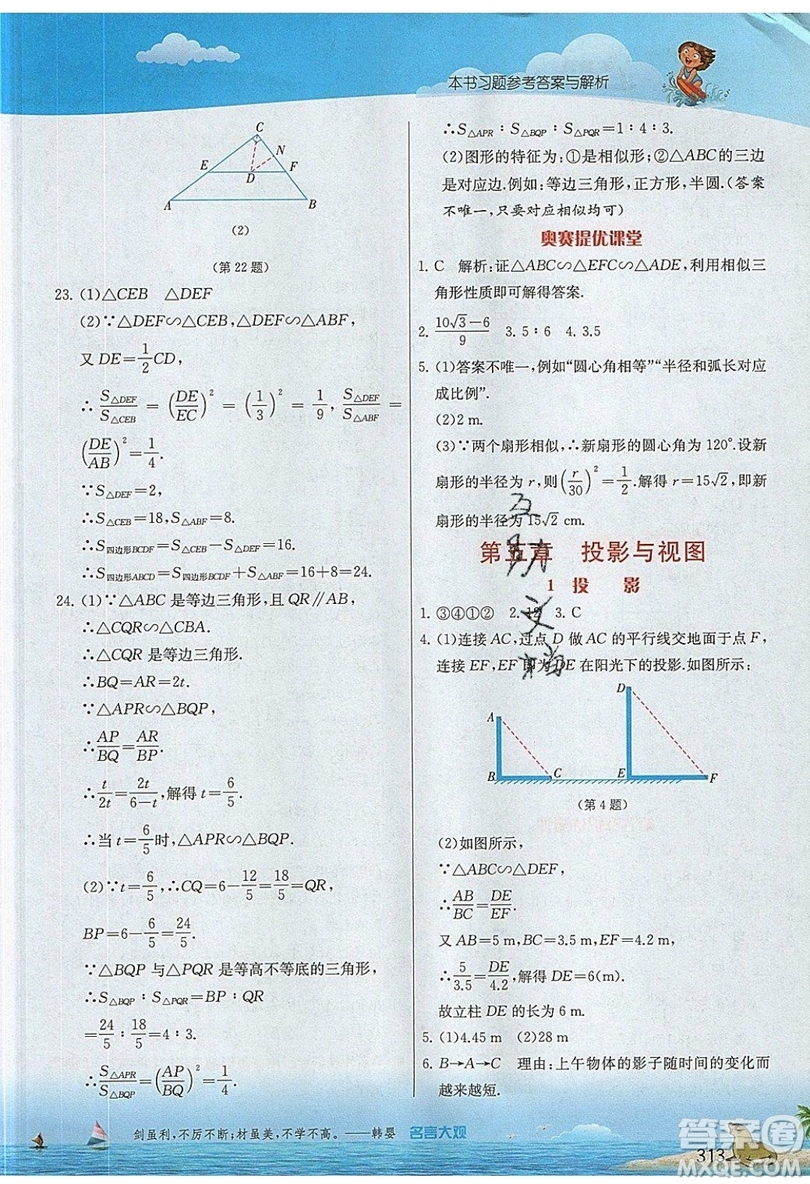 本书习题参考答案与解析
C
E
N
D
F
A
B
(2)
(第 22 题)
23. (1)△CEB △DEF
(2)∵△DEF∽△CEB,△DEF∽△ABF,
又 DE=1/2CD,
∴S△DEF/S△CEB=(DE/EC)²=(1/3)²=1/9,S△DEF/S△ABF=
(DE/AB)²=1/4.
∵S△DEF=2,
∴S△CEB=18,S△ABF=8.
∴S四边形BCDF=S△CEB−S△DEF=16.
∴S四边形ABCD=S四边形BCDF+S△ABF=16+8=24.
24. (1)∵△ABC 是等边三角形,且 QR∥AB,
∴△CQR∽△CBA.
∴△CQR 是等边三角形.
∴BQ=AR=2t.
∵△APR∽△PBQ,
∴AP/BQ=AR/BP.
∴t/2t=2t/6−t,解得 t=6/5.
∴当 t=6/5时,△APR∽△PBQ.
(2)∵t=6/5,∴CQ=6−12/5=18/5=QR,
BP=6−6/5=24/5.
∵△BQP 与△PQR 是等高不等底的三角形,
∴S△BQP∶S△PQR=BP∶QR
=24/5∶18/5=4∶3.
∴S△APR/S△BQP=(AP/BQ)²=1/4.
∴S△APR∶S△BQP∶S△PQR=1∶4∶3.
(2)图形的特征为:①是相似形;②△ABC的三边
是对应边.例如:等边三角形,正方形,半圆.(答案
不唯一,只要对应相似均可)
奥赛提优课堂
1. C 解析:证△ABC∽△EFC∽△ADE,利用相似三
角形性质即可解得答案.
2. 10√3−6/9 3. 5∶6 4. 3.5
5. (1)答案不唯一,例如“圆心角相等”“半径和弧长对应
成比例”.
(2)2 m.
(3)∵两个扇形相似,∴新扇形的圆心角为 120°.设新
扇形的半径为 r,则(r/30)²=1/2.解得 r=15√2,即新
扇形的半径为 15√2 cm.
第五章 投影与视图
1 投 影
1. ③④①② 2. 3. C
4. (1)连接 AC,过点 D 做 AC 的平行线交地面于点 F,
连接 EF,EF 即为 DE 在阳光下的投影.如图所示:
D
A
B
C
E
F
(第 4 题)
(2)如图所示,
∵△ABC∽△DEF,
∴AB/BC=DE/EF.
又 AB=5 m,BC=3.5 m,EF=4.2 m,
∴5/3.5=DE/4.2,解得 DE=6(m).
故立柱 DE 的长为 6 m.
5. (1)4.45 m (2)28 m
6. B→A→C 理由:上午物体的影子随时间的变化而
越来越短.
剑虽利,不厉不断;材虽美,不学不高。——韩婴 名言大观
313
答案圈
MXQE.COM